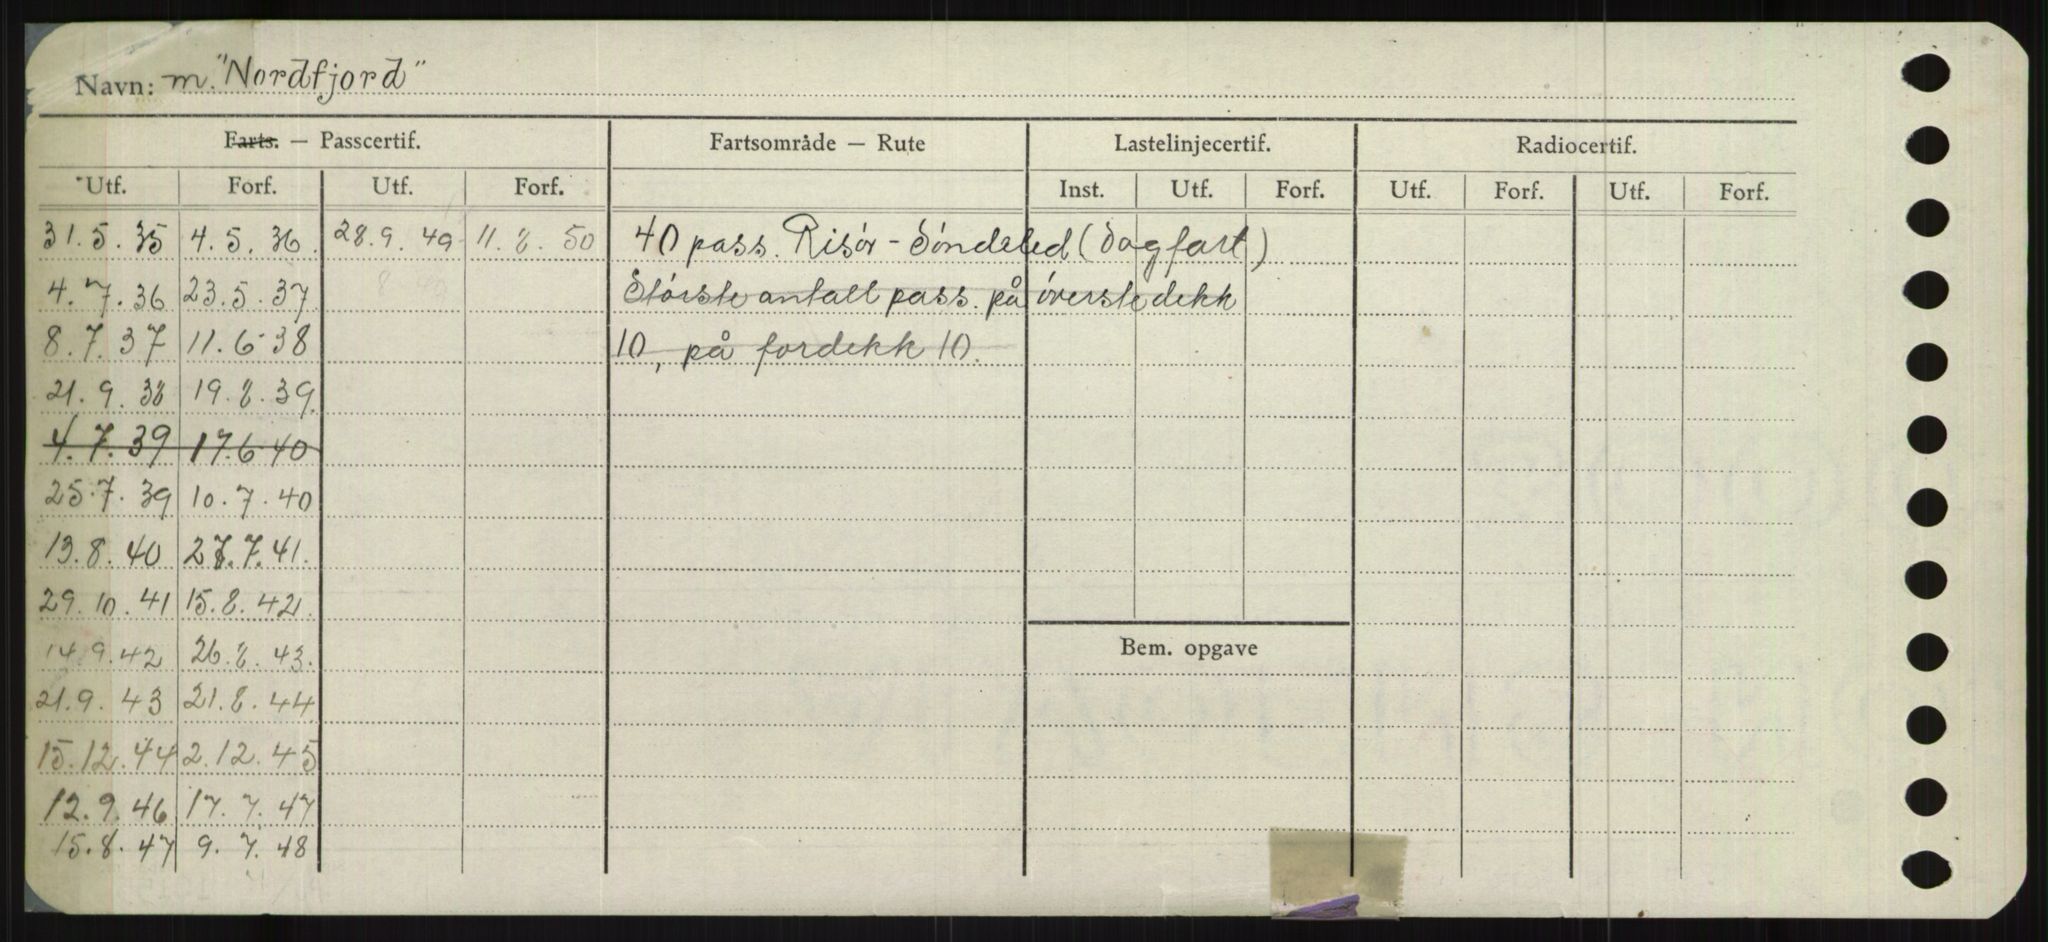 Navn: m. "Nordfjord"
Farts. — Passcertif. Fartsområde — Rute Lastelinjecertif. Radiocertif.
Utf. Forf. Utf. Forf. Inst. Utf. Forf. Utf. Forf. Utf. Forf.
31.5.35 4.5.36. 28.9.49 11.8.50 40 pass. Risör - Söndeled (Dagfart)
4.7.36 23.5.37 Störste antall pass. på överste dekk
8.7.37 11.6.38 10, på fordekk 10.
21.9.38 19.8.39.
4.7.39 17.6.40
25.7.39 10.7.40
13.8.40 27.7.41.
29.10.41 15.8.42.
14.9.42 26.8.43.
Bem. opgave
21.9.43 21.8.44
15.12.44 2.12.45
12.9.46 17.7.47
15.8.47 9.7.48